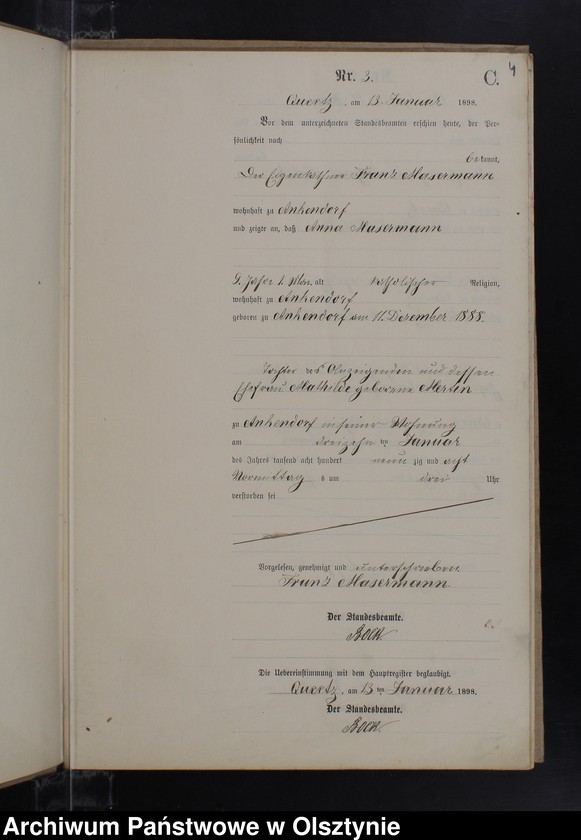 Nr. 3.
C.
4
Quertz, am 13. Januar 1898.
Vor dem unterzeichneten Standesbeamten erschien heute, der Per-
sönlichkeit nach
be kannt,
Der Eigenkäthner Franz Masermann
wohnhaft zu Ankendorf
und zeigte an, daß Anna Masermann
9. Jahre 1. Mon. alt katholischer Religion,
wohnhaft zu Ankendorf
geboren zu Ankendorf am 11. Dezember 1888.
Tochter des Anzeigenden und dessen
Ehefrau Mathilde geborene Merten
zu Ankendorf in seiner Wohnung
am dreizehn ten Januar
des Jahres tausend acht hundert neun zig und acht
Vormittag s um drei Uhr
verstorben sei
Vorgelesen, genehmigt und unterschrieben
Franz Masermann
Der Standesbeamte.
Bock
Die Uebereinstimmung mit dem Hauptregister beglaubigt.
Quertz, am 13 ten Januar 1898.
Der Standesbeamte.
Bock.
Archiwum Państwowe w Olsztynie